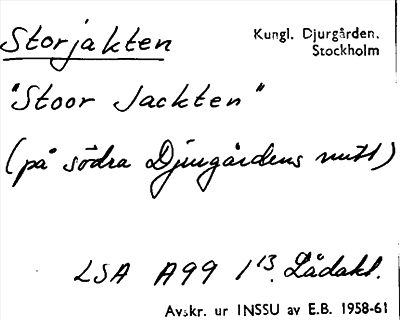 Storjakten
Kungl. Djurgården.
Stockholm
"Stoor Jackten"
(på södra Djurgårdens mitt)
LSA A99 1¹³. Lådakt.
Avskr. ur INSSU av E.B. 1958-61